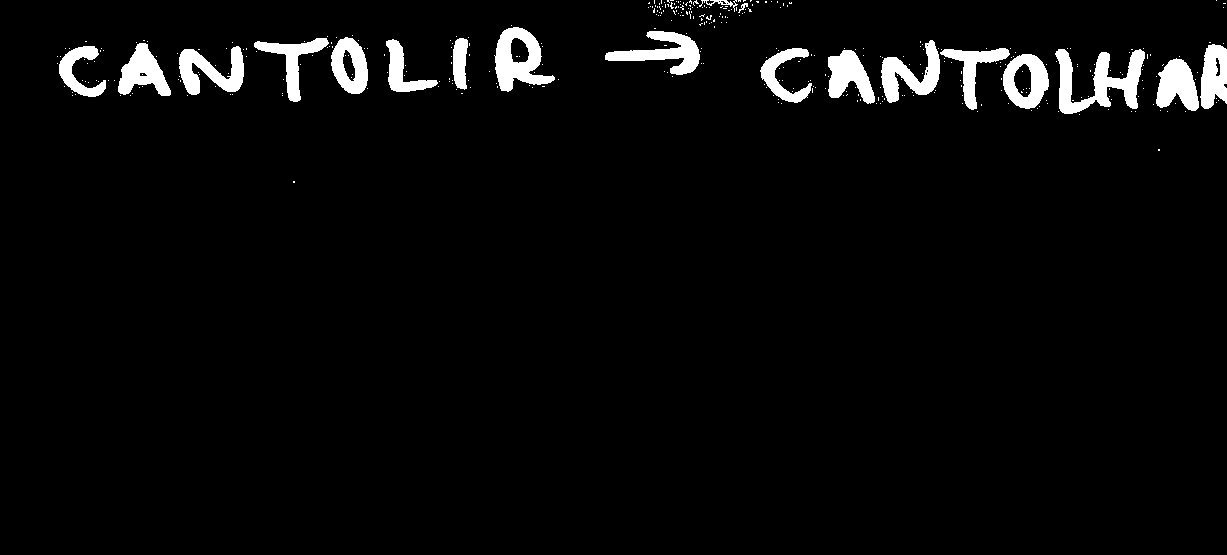 CANTOLIR → CANTOLHAR